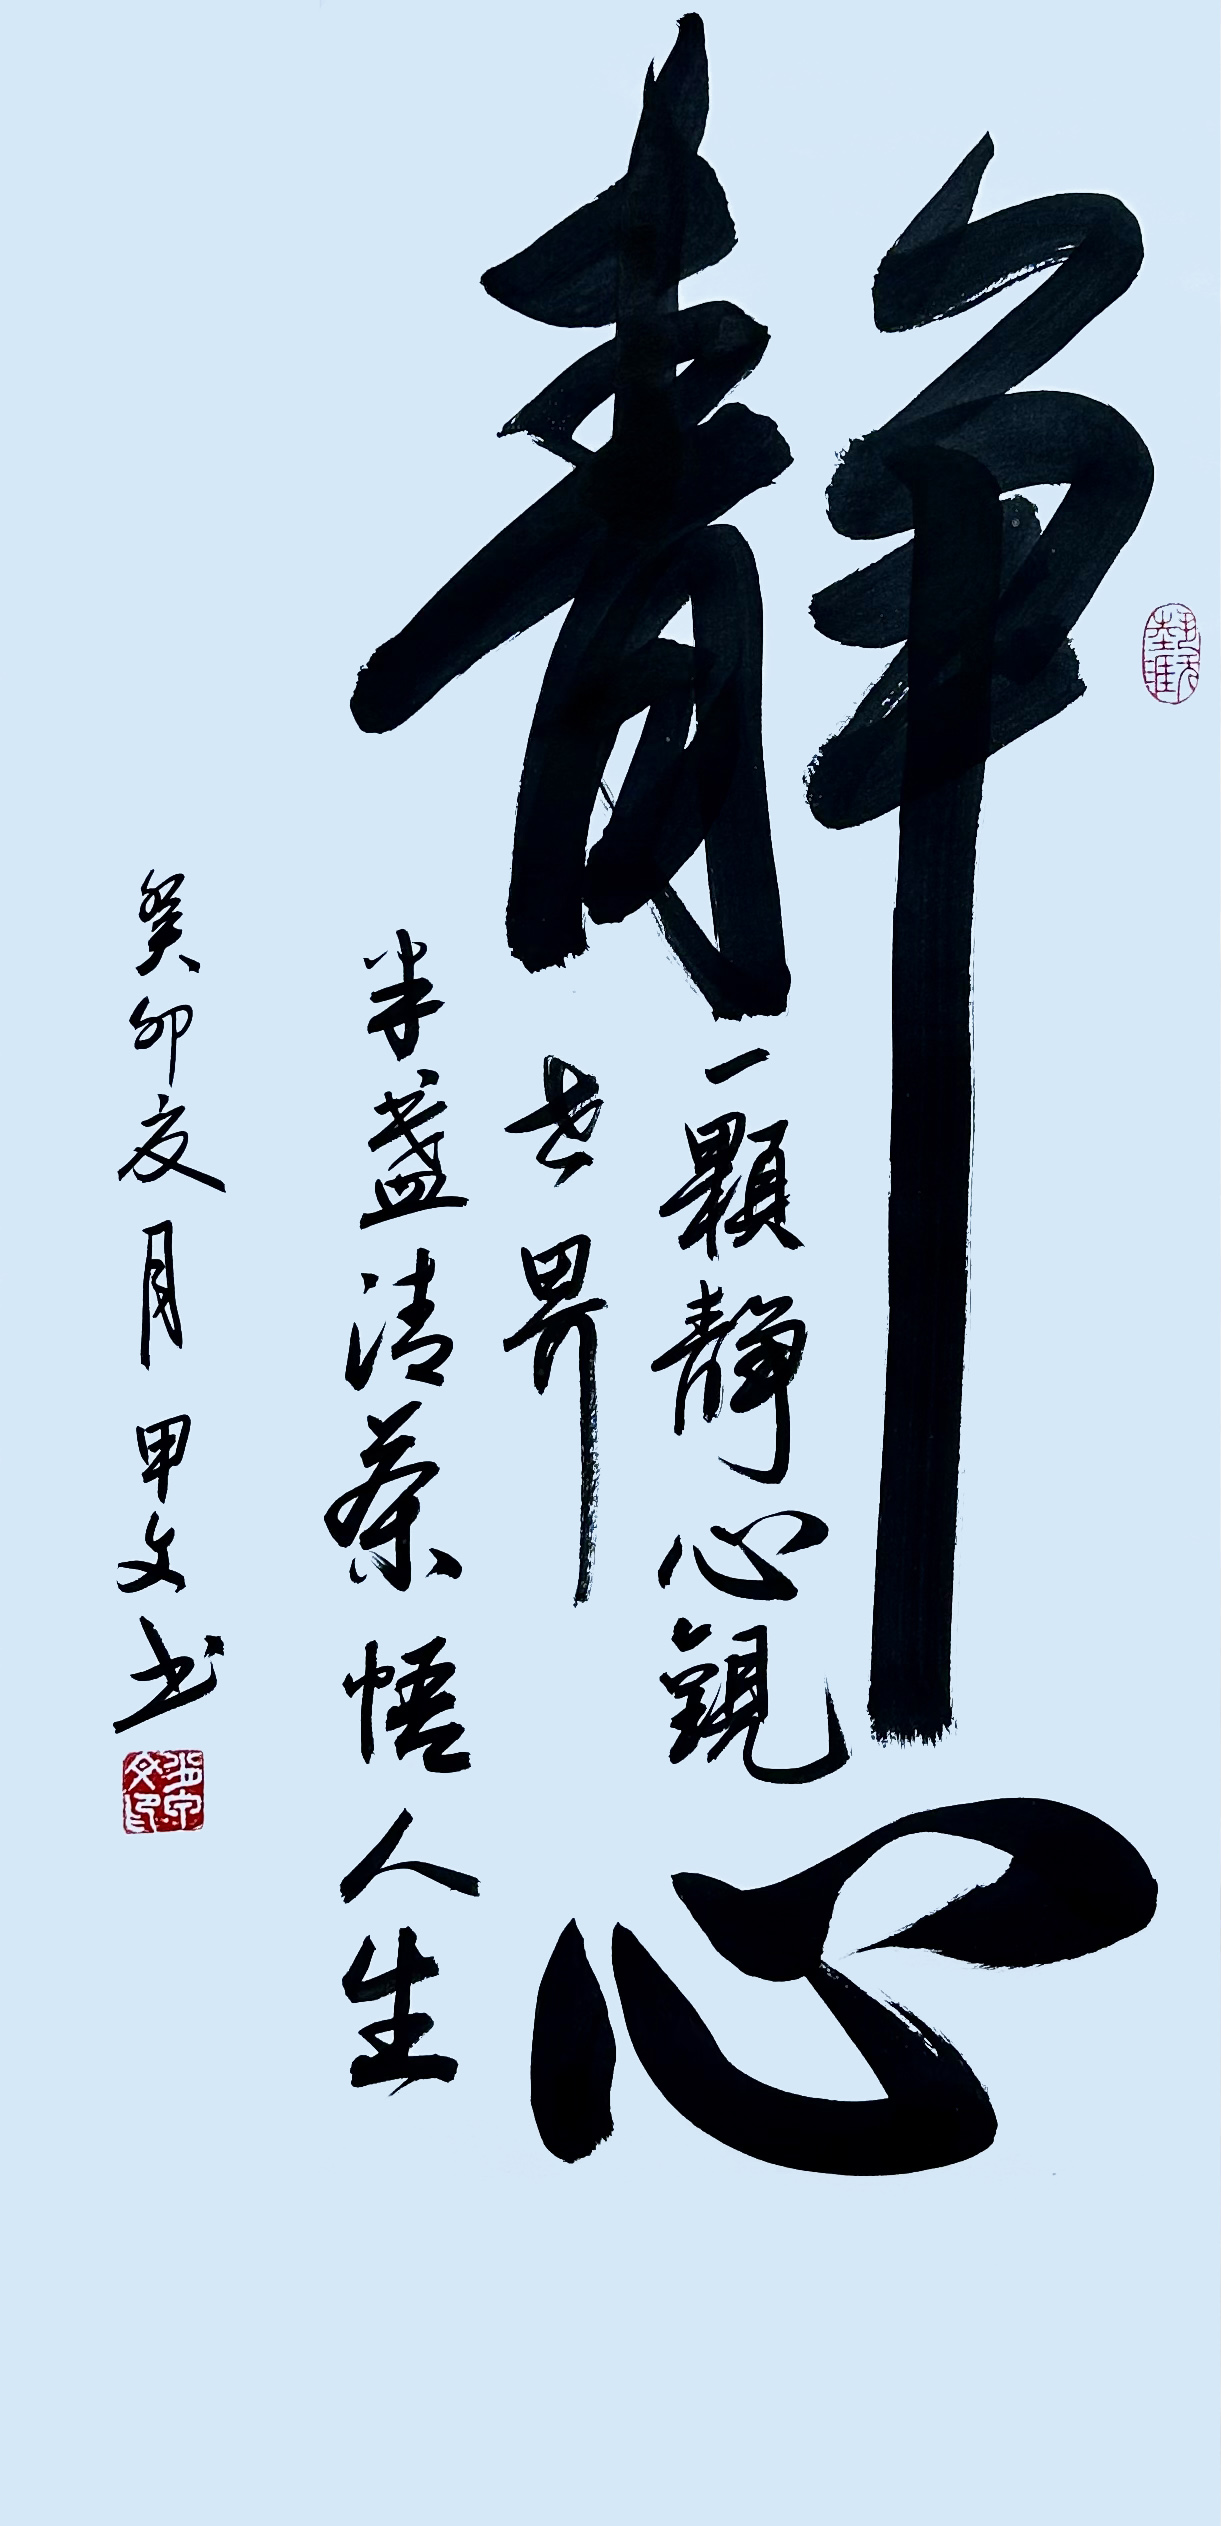 靜心
一顆靜心觀
世界
半盞清茶悟人生
癸卯夏月甲文书